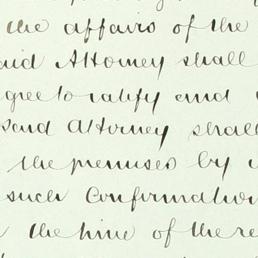 the affairs of the
said Attorney shall
agree to ratify and
said Attorney shall
the premises by
such Confirmation
the time of the re